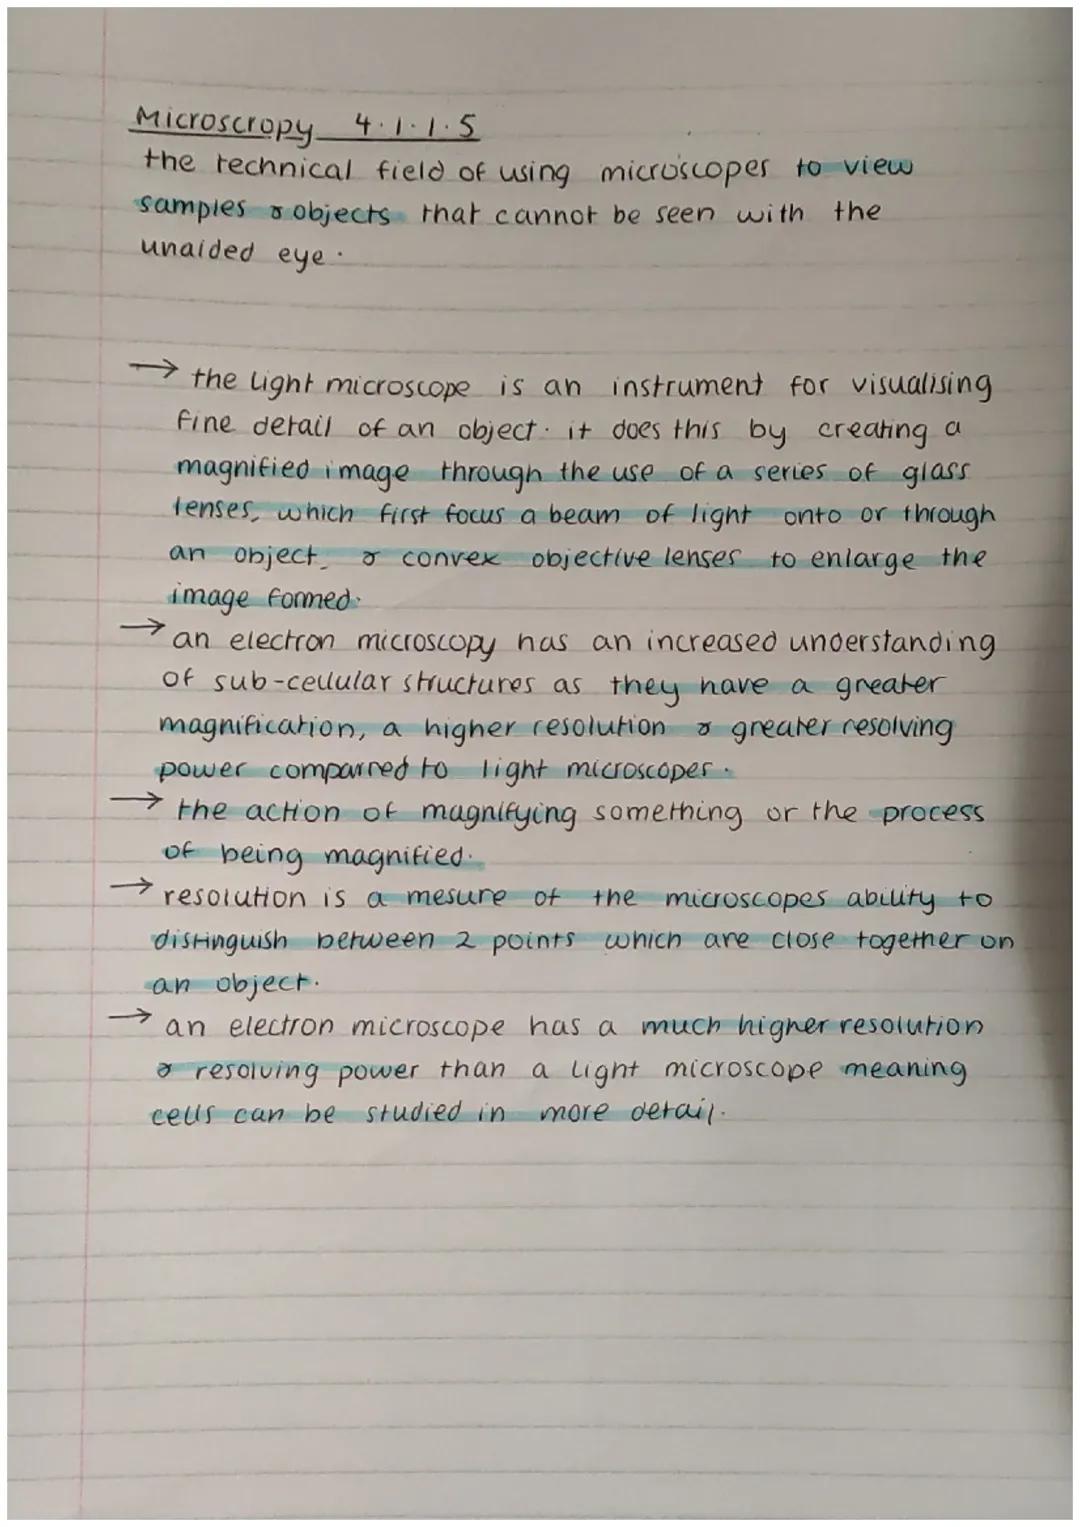 Microscropy 4.1.1.5
the technical field of using microscopes to view
samples & objects that cannot be seen with the
unaided eye.
→ the light microscope is an instrument for visualising
fine detail of an object. it does this by creating a
magnified image through the use of a series of glass
lenses, which first focus a beam of light onto or through
an object, & convex objective lenses to enlarge the
image formed.
→ an electron microscopy has an increased understanding
of sub-cellular structures as they have a greater
magnification, a higher resolution & greater resolving
power comparred to light microscopes.
→ the action of magnifying something or the process
of being magnified.
→ resolution is a mesure of the microscopes ability to
distinguish between 2 points which are close together on
an object.
→ an electron microscope has a much higher resolution
& resolving power than a light microscope meaning
cells can be studied in more detail.